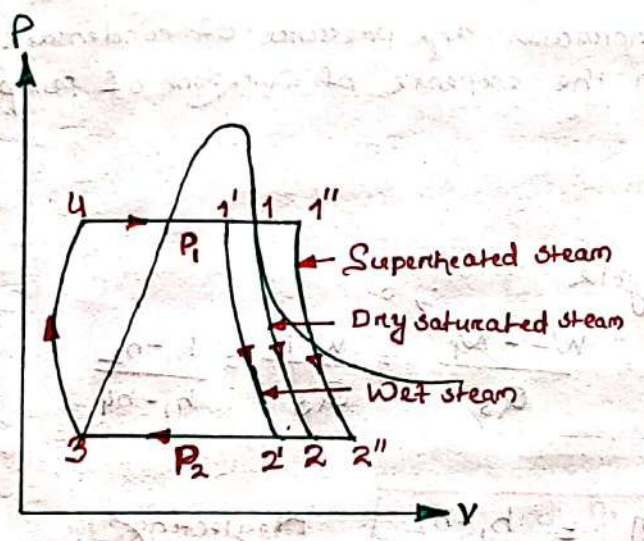 P
4 1' 1 1"
P₁
Superheated steam
Dry saturated steam
Wet steam
3 P₂ 2' 2 2"
V